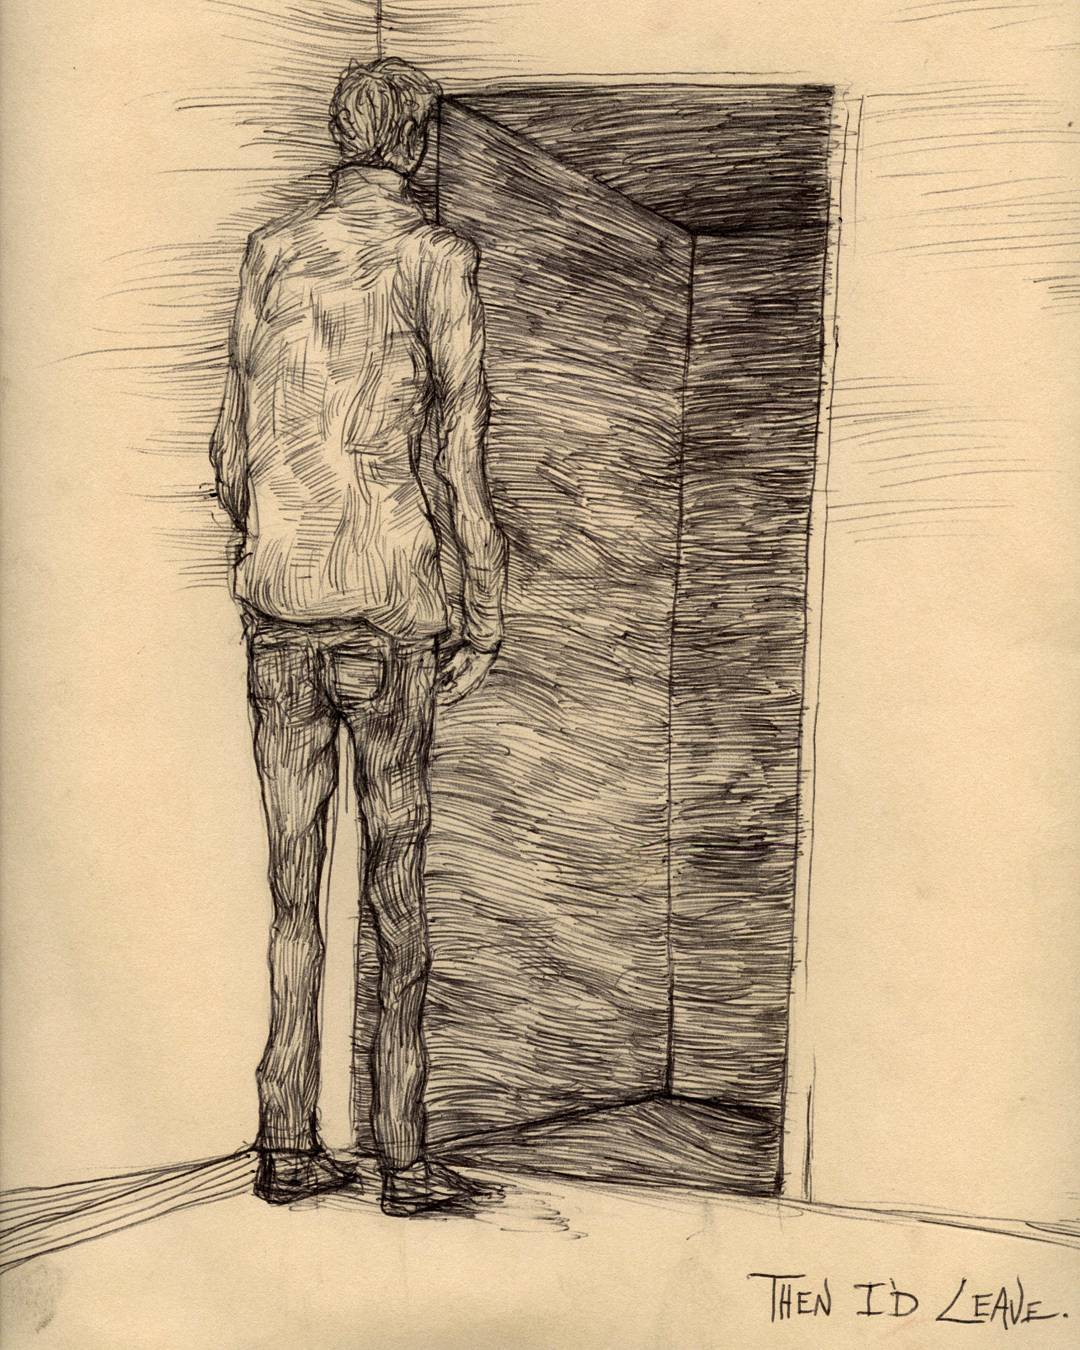 THEN I'D LEAVE.